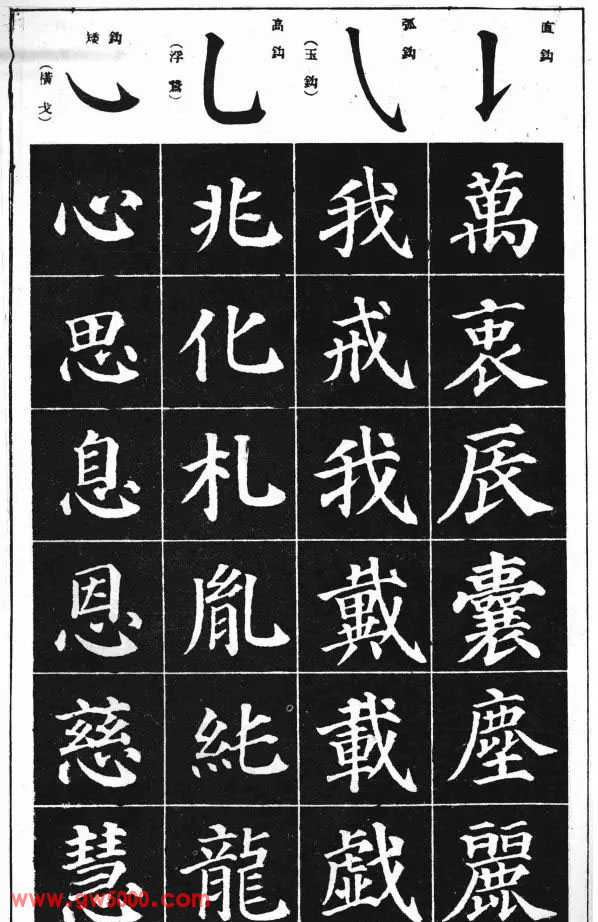 直鈎
萬
衷
辰
囊
塵
麗
弧鈎
(玉鈎)
我
戒
我
戴
載
戯
高鈎
(浮鵞)
兆
化
札
胤
純
龍
矮鈎
(橫戈)
心
思
息
恩
慈
慧
www.gw5000.com